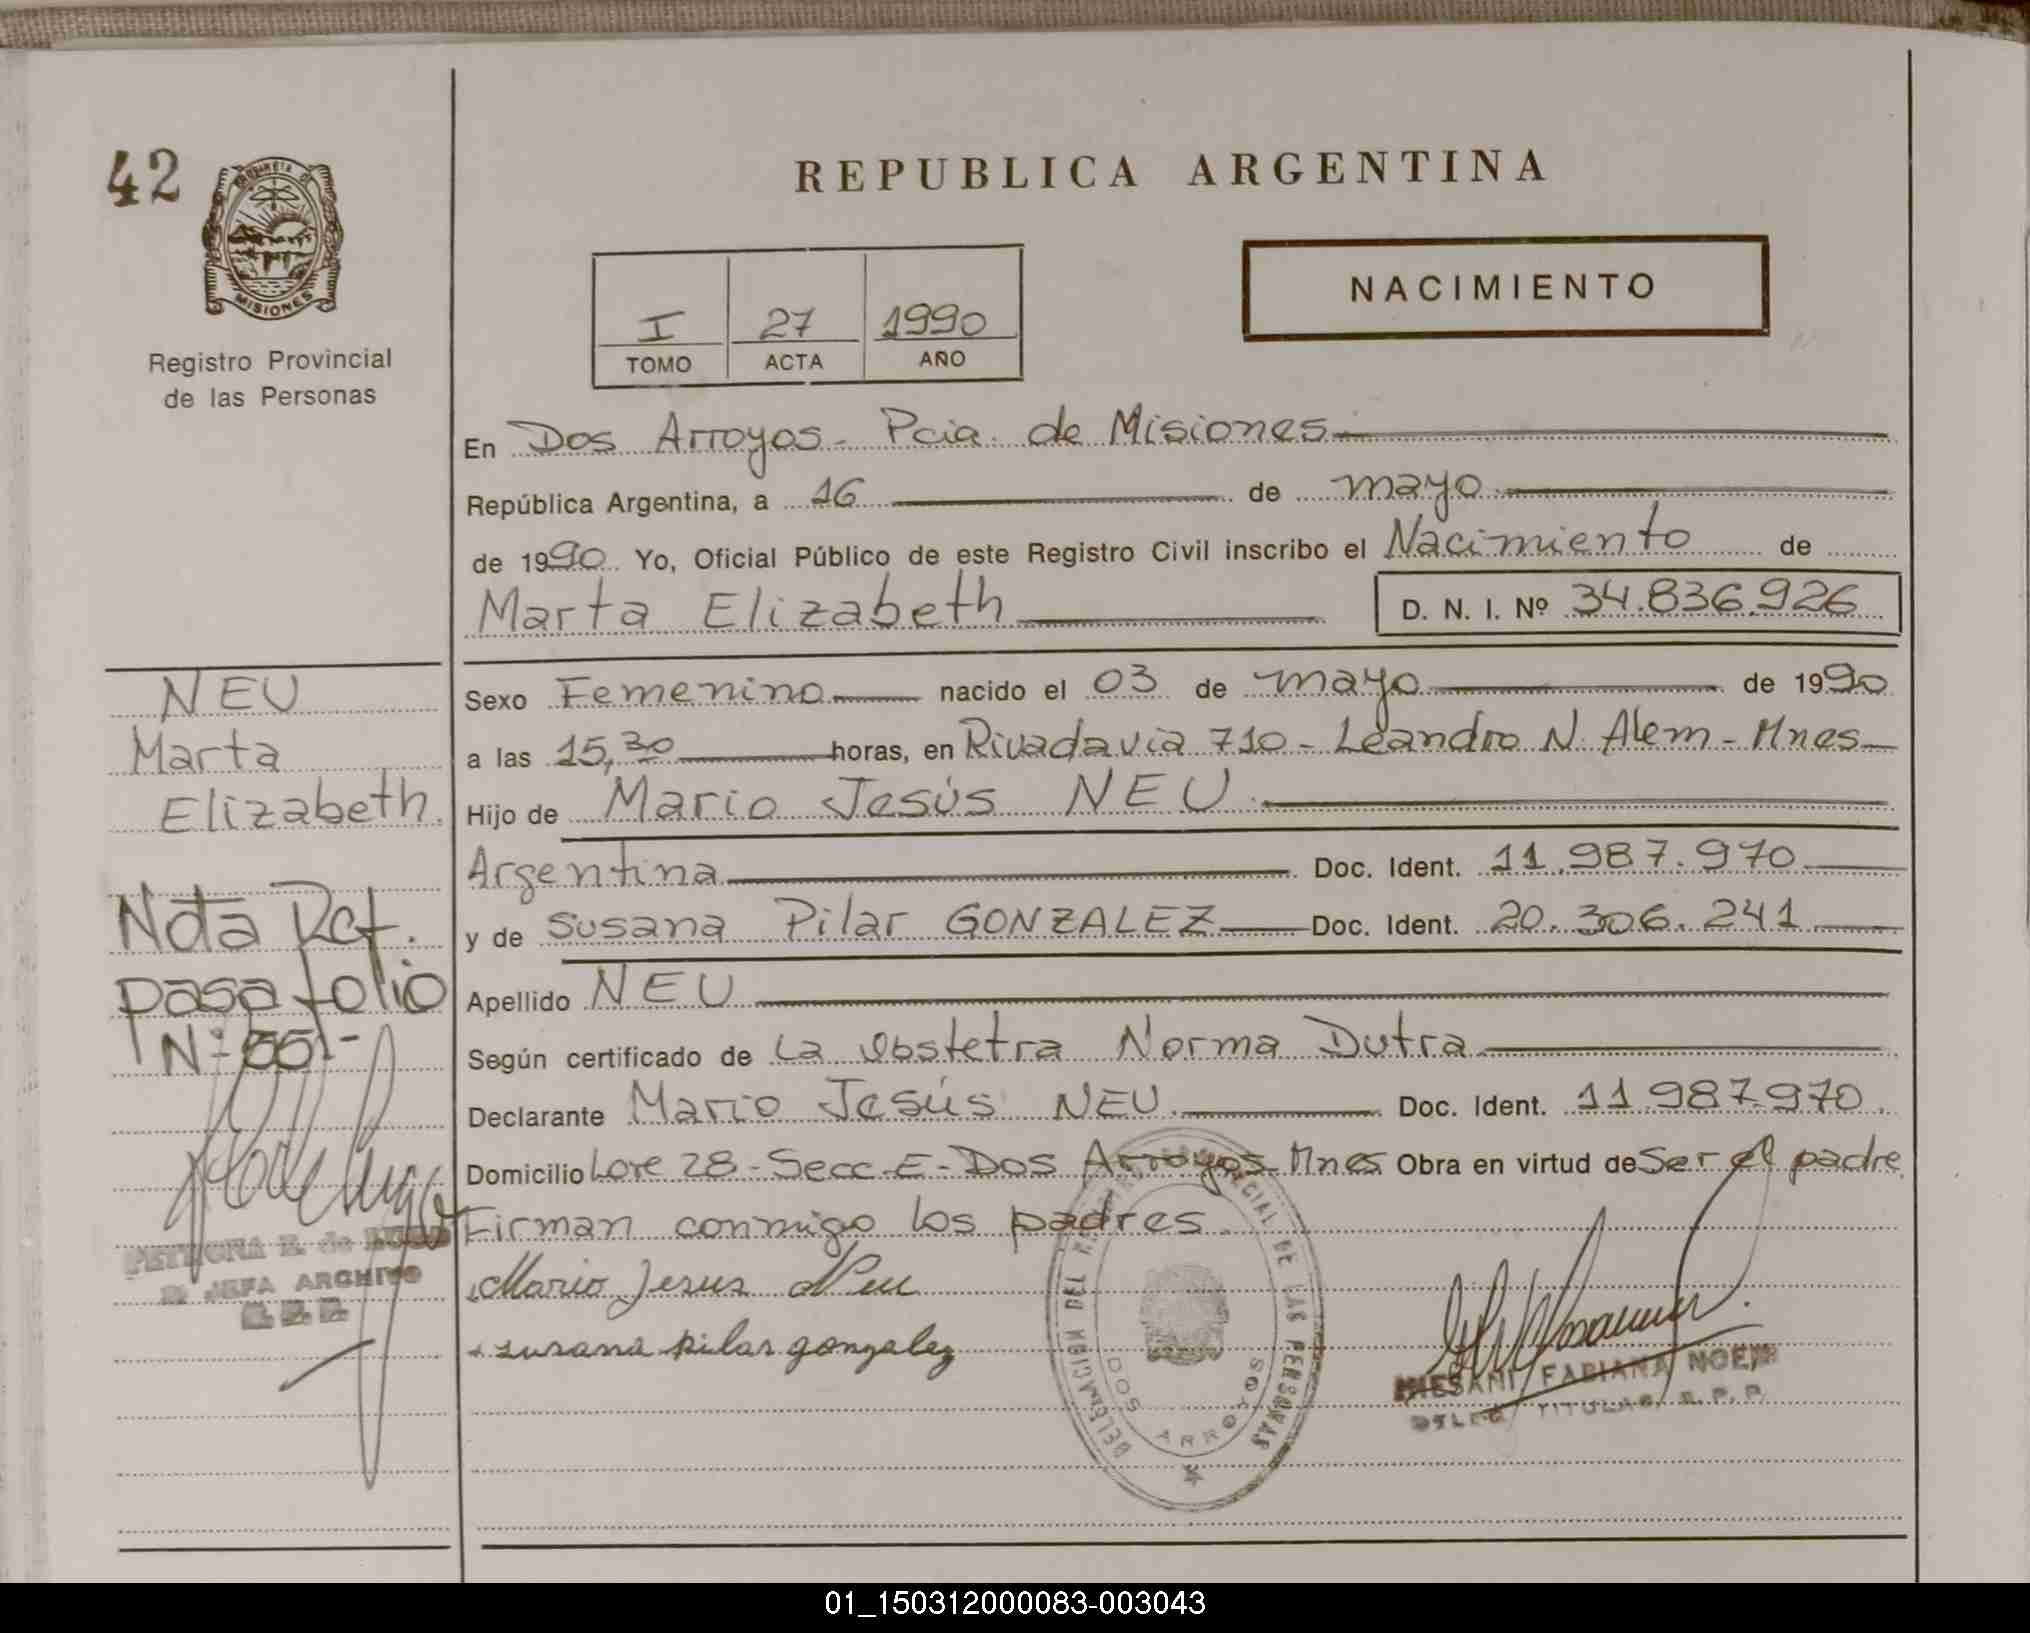 42
PROVINCIA DE
MISIONES
Registro Provincial
de las Personas
REPUBLICA ARGENTINA
NACIMIENTO
I 27 1990
TOMO ACTA AÑO
En Dos Arroyos - Pcia. de Misiones
República Argentina, a 16 de mayo
de 1990 Yo, Oficial Público de este Registro Civil inscribo el Nacimiento de
Marta Elizabeth D. N. I. Nº 34.836.926
Sexo Femenino nacido el 03 de mayo de 1990
a las 15,30 horas, en Rivadavia 710 - Leandro N. Alem - Mnes
Hijo de Mario Jesús NEU
Argentina Doc. Ident. 11.987.970
y de Susana Pilar GONZALEZ Doc. Ident. 20.306.241
Apellido NEU
Según certificado de La Obstetra Norma Dutra
Declarante Mario Jesús NEU Doc. Ident. 11.987.970
Domicilio Lote 28 - Secc. E - Dos Arroyos - Mnes Obra en virtud de Ser el padre
Firman conmigo los padres.
Mario Jesus Neu
susana pilar gonzalez
NEU
Marta
Elizabeth
Nota Ref.
pasa folio
Nº 55 -
JEFA ARCHIVO
DELEGACION DEL PROVINCIAL DE LAS PERSONAS
DOS ARROYOS
FABIANA NOEMI
TITULAR R.P.P.
01_150312000083-003043